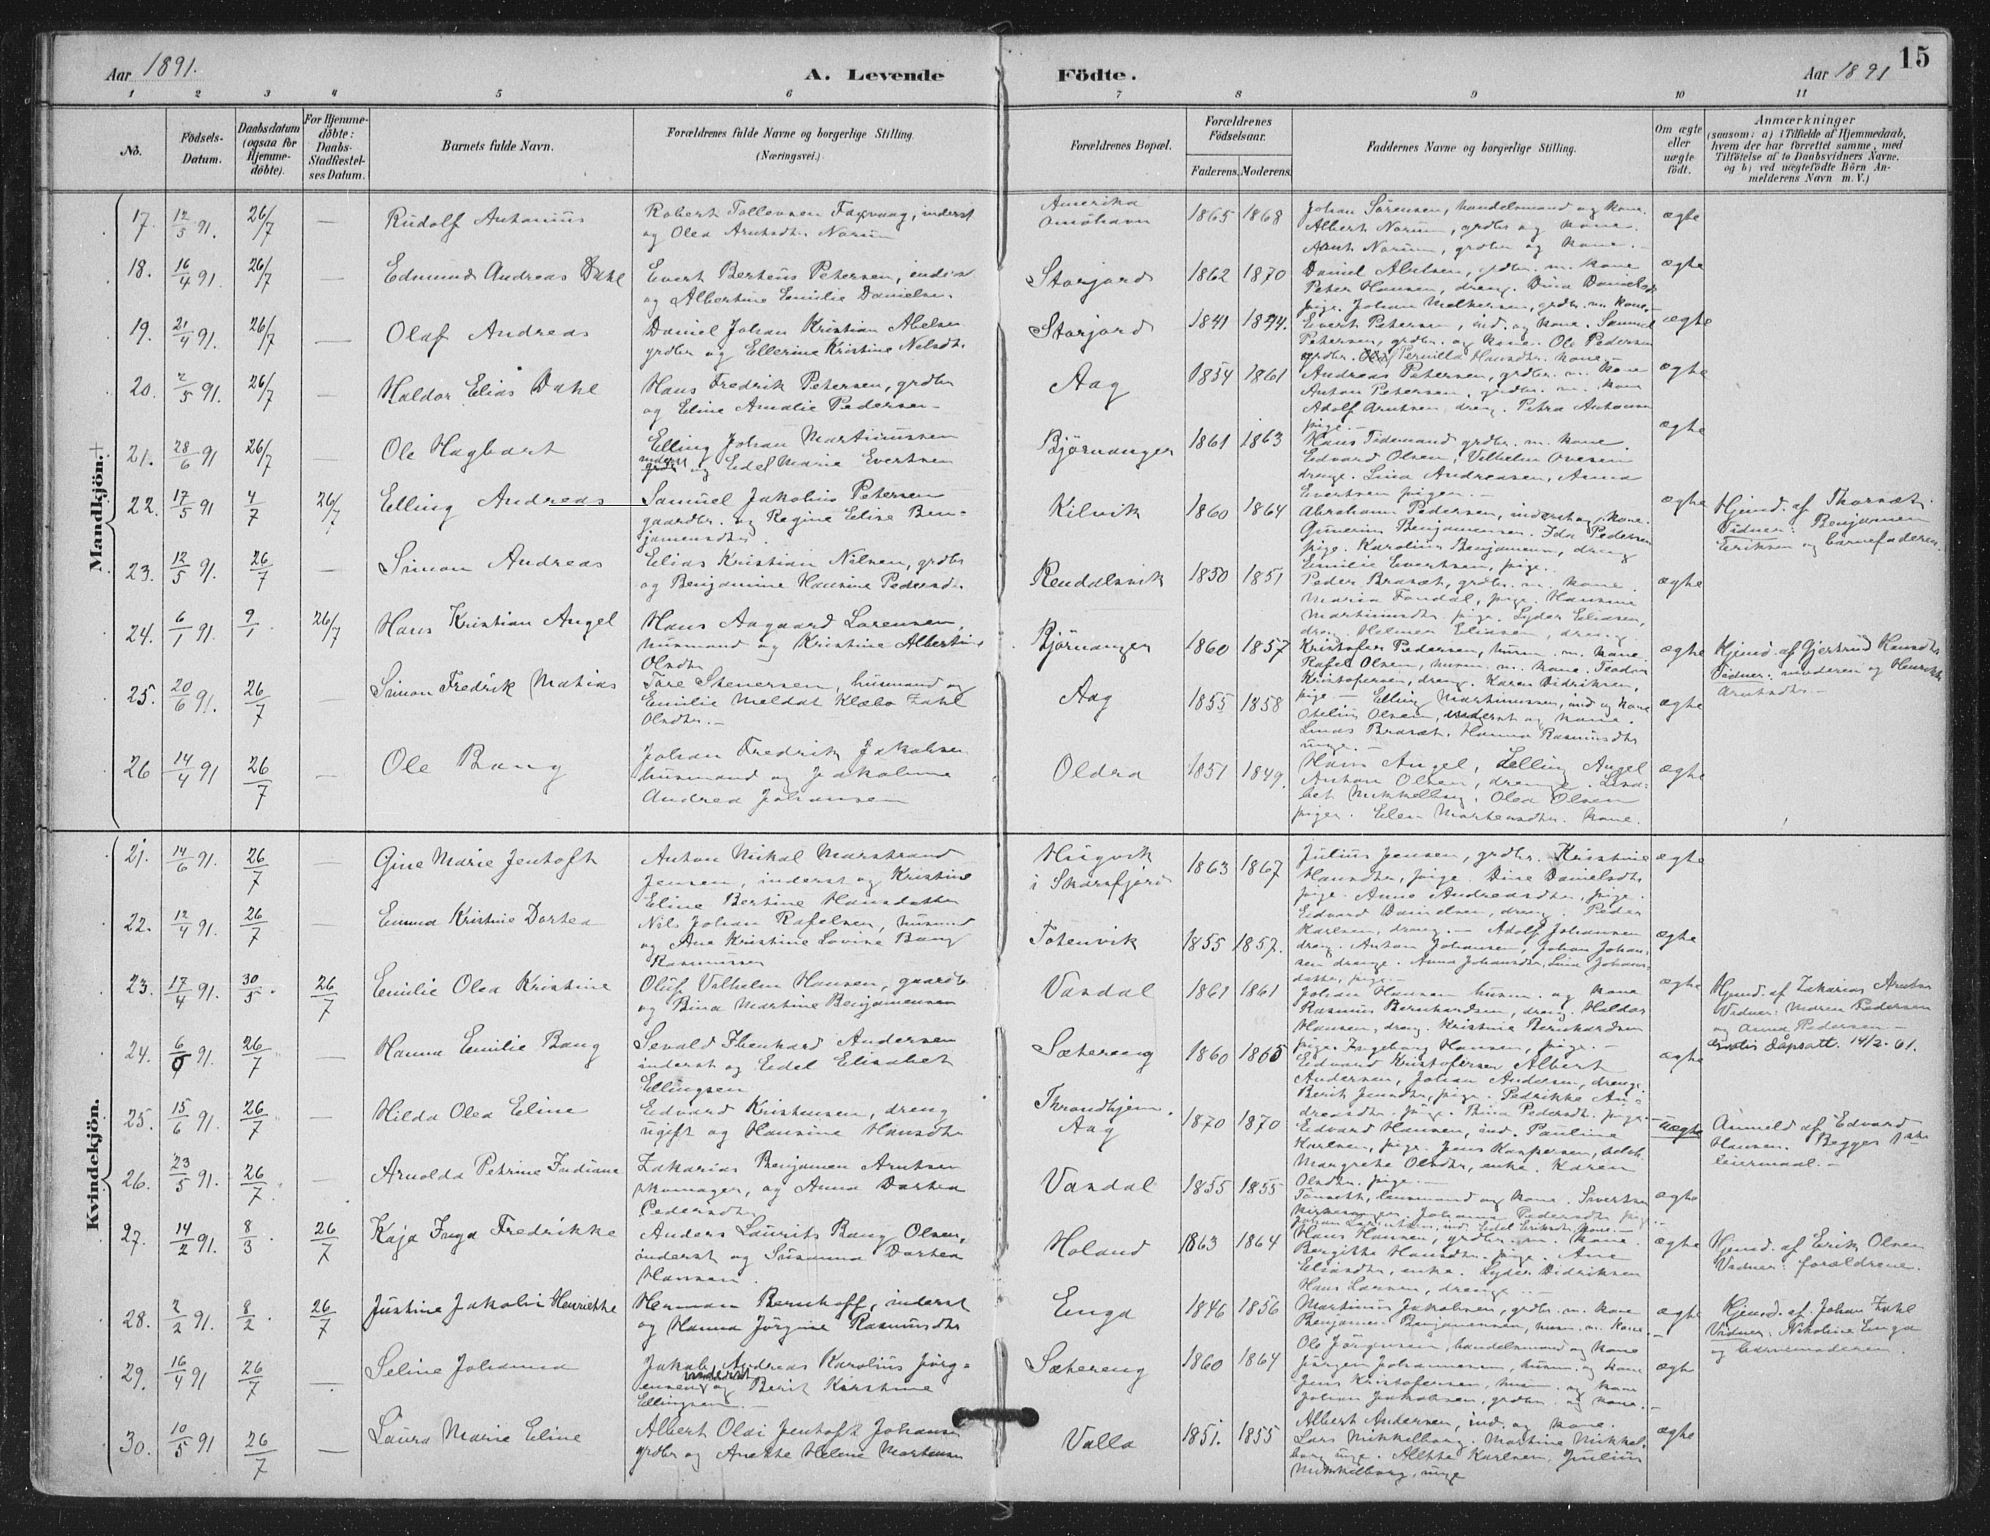 Aar 1891.
A. Levende
Födte.
Aar 1891
15
1 2 3 4 5 6 7 8 9 10 11
No.
Födsels-Datum.
Daabsdatum (ogsaa for Hjemme-döbte).
For Hjemme-döbte: Daabs-Stadfæstel-ses Datum.
Barnets fulde Navn.
Forældrenes fulde Navne og borgerlige Stilling.
(Næringsvei.)
Forældrenes Bopæl.
Forældrenes Födselsaar.
Faderens. Moderens.
Faddernes Navne og borgerlige Stilling.
Om ægte eller uægte födt.
Anmærkninger
(saasom: a) i Tilfælde af Hjemmedaab,
hvem der har forrettet samme, med
Tilföielse af to Daabsvidners Navne,
og b) ved uægtefödte Börn An-
melderens Navn m. V.)
Mandkjön.
17. 12/5 91. 26/7 — Rudolf Antonius
Robert Tollevsen Farvaag, inderst
og Olea Arntsdtr. Norum
Amerika
1865 1868
Johan Sørensen, handelsmand og kone.
Albert Norum, grdbr og kone.
Arnt Norum, grdbr og kone. —
ægte
18. 16/4 91. 26/7 — Edmund Andreas Dahl
Evert Berteus Petersen, inderst
og Albertine Emilie Danielsen.
Storjord
1862 1870
Daniel Abelsen, grdbr. m. kone
Peter Hansen, dreng. Dina Danielsdtr
pige. Johan Melkersen, grdbr. m. kone.
ægte
19. 21/4 91. 26/7 — Olaf Andreas
Daniel Johan Kristian Abelsen
grdbr og Ellerine Kristine Nelsdtr
Storjord
1841 1844.
Evert Petersen, ind. og kone. Samuel
Petersen, grdbr. og kone. Ole Pedersen
grdbr. Pernilla Hansdtr. kone. —
ægte
20. 2/5 91. 26/7 — Haldor Elias Dahl
Hans Fredrik Petersen, grdbr
og Eline Amalie Pedersen —
Aag
1854 1861
Andreas Petersen, grdbr. m. kone
Anton Petersen, grdbr. m. kone
Adolf Arntsen, dreng. Petra Antonsen
pige. —
ægte
21. 28/6 91 26/7 — Ole Hagbart
Elling Johan Martinussen
inderst og Edel Marie Evertsen
Bjørnanger
1861 1863
Hans Tidemand grdbr. m. kone
Edvard Olsen, Vilhelm Ovesen
drenge. Lina Andreasen, Anna
Evertsen piger. —
ægte
22. 17/5 91 4/7 26/7 Elling Andreas
Samuel Jakobius Petersen
gaardbr. og Regine Elise Ben-
jamensdtr.
Kilvik
1860 1864
Abraham Pedersen, inderst og kone.
Gunerius Benjamensen. Ida Pedersen
pige. Karolius Benjamensen, dreng
Emilie Evertsen, pige.
ægte
Hjemd. af Thorsæt.
Vidner: Benjamen
Eriksen og barnefaderen.
23. 12/5 91. 26/7 — Simon Andreas
Elias Kristian Nilsen, grdbr
og Benjamine Hansine Pedersdtr.
Rendalsvik
1850 1851
Peder Brasæt, grdbr. m. kone
Maria Fondal, pige. Hansine
Martinusdtr. pige. Lyder Eliasen,
dreng. Helmer Eliasen, dreng.
ægte
24. 6/1 91. 9/1. 26/7 Hans Kristian Angel
Hans Aagaard Lorensen,
husmand og Kristine Albertine
Olsdtr
Bjørnanger
1860 1857
Kristofer Pedersen, husm. m. kone
Rafael Olsen, husm. m. kone. Teodor
Kristofersen, dreng. Karen Didriksen,
pige —
ægte
Hjemd. af Gjertrud Hansdtr
Vidner: moderen og Henrikke
Arntsdtr. —
25. 20/6 91. 26/7 — Simon Fredrik Matias
Tore Stenersen, husmand og
Emilie Meldal Klæbo Zahl
Olsdtr. —
Aag
1855 1858
Elling Martinussen, ind og kone
Otelius Olsen, inderst og kone.
Linds Brasæt. Hanna Rasmusdtr
unge. —
ægte
26 14/4 91 26/7 — Ole Bang
Johan Fredrik Jakobsen
husmand og Jakobine
Andrea Johansen
Oldra
1851 1849.
Hans Angel, Elling Angel
Anton Olsen, drenge. Lisa-
bet Mikkelborg. Olea Olsen
piger. Elen Mortensdtr. kone.
ægte
Kvindekjön.
21. 14/6 91. 26/7 — Gine Marie Jentoft
Anton Mikal Marstrand
Jensen, inderst og Kristine
Eline Bertine Hansdatter
Husvik
i Skarsfjord
1863 1867
Julius Jensen, grdbr. Kristine
Hansdtr, pige. Dine Danielsdtr
pige. Anne Andreasdtr, pige.
Edvard Danielsen, dreng. Peder
Karlsen, dreng. —
ægte
22. 12/4 91. 26/7 — Emma Kristine Dortea
Nils Johan Rafelsen, husmd
og Ane Kristine Lovise Bang
Rasmussen
Totenvik
1855 1857.
Adolf Johansen
dreng. Anton Johansen, Johan Johan-
sen drenge. Anna Johansdtr, Lina Johans-
datter, pige. —
ægte
23. 17/4 91. 30/5. 26/7 Emilie Olea Kristine
Oluf Vilhelm Hansen, gaardbr
og Bina Martine Benjamensen
Vasdal
1861 1861
Johan Hansen husm. og kone
Rasmus Bernhardsen, dreng. Haldor
Hansen, dreng. Kristine Bernhardsen
pige. Ingeborg Hansen, pige. —
ægte
Hjemd. af Zakarias Arntsen
Vidner: Maren Pedersen
og Anna Pedersen —
Gratis dåpsatt. 14/2-61.
24. 6/5 91. 26/7 — Hanna Emilie Bang
Sevald Ibenhard Andersen
inderst og Edel Elisabet
Ellingsen
Sætereng
1860 1865
Edvard Kristofersen Albert
Andersen, Johan Andersen, drenge.
Berit Jensdtr, pige. Pedrikke An-
dreasdtr. pige. Bina Pedersdtr. pige. —
ægte
25. 15/6 91. 26/7 — Hilda Olea Eline
Edvard Kristensen, dreng
ugift og Hansine Hansdtr
Throndhjem.
Aag
1870 1870
Edvard Hansen, ind. Pauline
Karlsen, pige. Jens Kaspersen,
Margrete Olsdtr, enke. Karen
Olsdtr. pige. —
uægte
Anmeld af Edvard
Hansen. Begges 1ste
leiermaal. —
26. 23/5 91. 26/7. — Arnolda Petrine Indiana
Zakarias Benjamen Arntsen
skomager, og Anna Dortea
Pedersdtr
Vasdal
1855 1855
Tønseth, husmand og kone. Sivertsen
kirkesanger. Johanna Pedersdtr pige
ægte
27. 14/2 91. 8/3. 26/7 Kaja Inga Fredrikke
Anders Laurits Bang Olsen,
inderst og Susanna Dortea
Hansen.
Holand
1863 1864
Johan Larentsen, ind. Edel Eriksdtr, kone. —
Hans Hansen, grdbr. m. kone.
Bergitte Hansdtr. pige. Ane
Eliasdtr, enke. Lyder Didriksen
Hans Larsen, drenge. —
ægte
Hjemd. af Erik Olsen
Vidner: forældrene.
28. 2/2 91. 8/2. 26/7 Justine Jakobine Henrikke
Herman Bernhoff, inderst
og Hanna Jørgine Rasmusdtr
Enga
1846 1856
Martinus Jakobsen, grdbr. m. kone
Benjamen Benjamensen, husm. m. kone.
ægte
Hjemd. af Johan Zahl
Vidner: Nikoline Enga
og barnemoderen.
29. 16/4 91 26/7 — Seline Johanna
Jakob Andreas Karolius Jørg-
ensen inderst og Berit Kirstine
Ellingsen. —
Sætereng
1860 1864
Ole Jørgensen, handelsmand og kone
Jørgen Johannesen, husm. og kone
Jens Kristofersen, husm. og kone
Johan Jakobsen, grdbr. og kone. —
ægte
30. 10/5 91 26/7 — Laura Marie Eline
Albert Oldi Jentoft Johansen
grdbr og Anette Helene Mortensen
Valla
1851. 1855
Albert Andersen, ind. og kone.
Lars Mikkelborg. Martine Mikkel-
borg unge. Alette Karlsen, Julius
Mikkelborg, unge
ægte